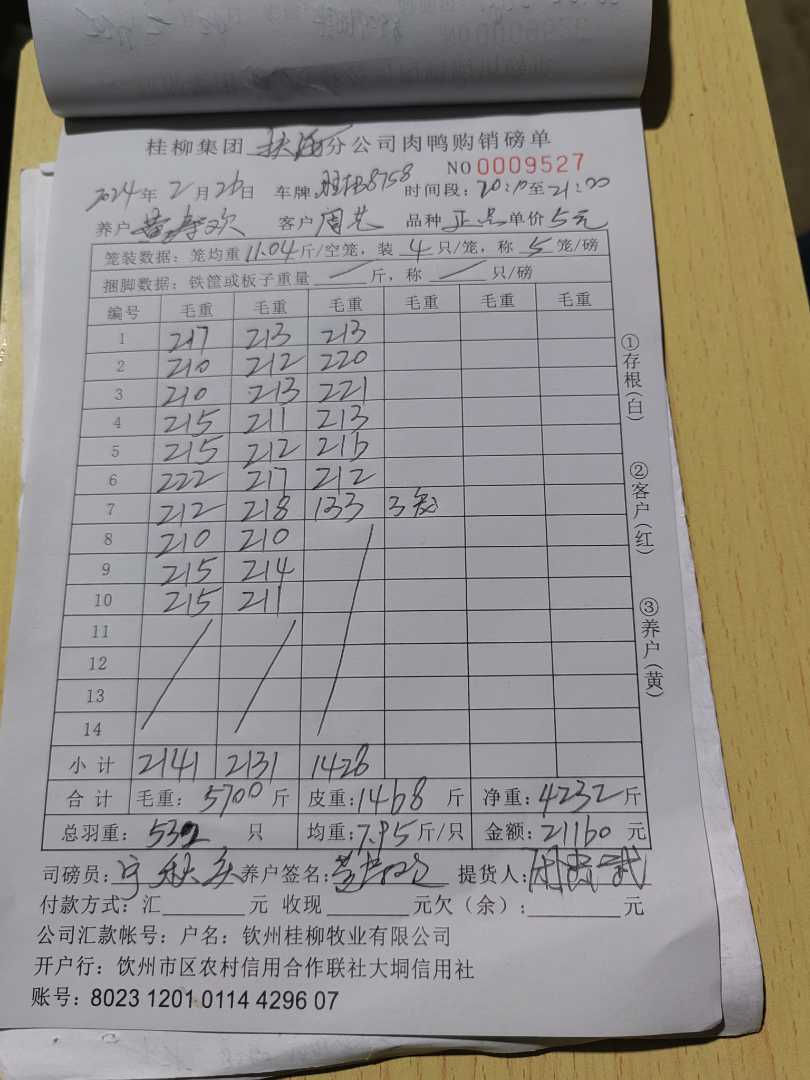 桂柳集团 扶海 分公司肉鸭购销磅单
NO 0009527
2024年2月26日 车牌 8758 时间段：20:10至21:00
养户 黄寿欢 客户 周艺 品种 正品 单价 5元
笼装数据：笼均重 11.04 斤/空笼，装 4 只/笼，称 5 笼/磅
捆脚数据：铁筐或板子重量 — 斤，称 — 只/磅
编号 毛重 毛重 毛重 毛重 毛重 毛重
1 217 213 213
2 210 212 220
3 210 213 221
4 215 211 213
5 215 212 216
6 222 217 212
7 212 218 133 3笼
8 210 210
9 215 214
10 215 211
11
12
13
14
小计 2141 2131 1428
合计 毛重：5700斤 皮重：1468斤 净重：4232斤
总羽重：532 只 均重：7.95斤/只 金额：21160元
司磅员： 养户签名： 提货人：
付款方式：汇 元 收现 元欠（余）： 元
公司汇款帐号：户名：钦州桂柳牧业有限公司
开户行：饮州市区农村信用合作联社大垌信用社
账号：8023 1201 0114 4296 07
①存根(白)
②客户(红)
③养户(黄)